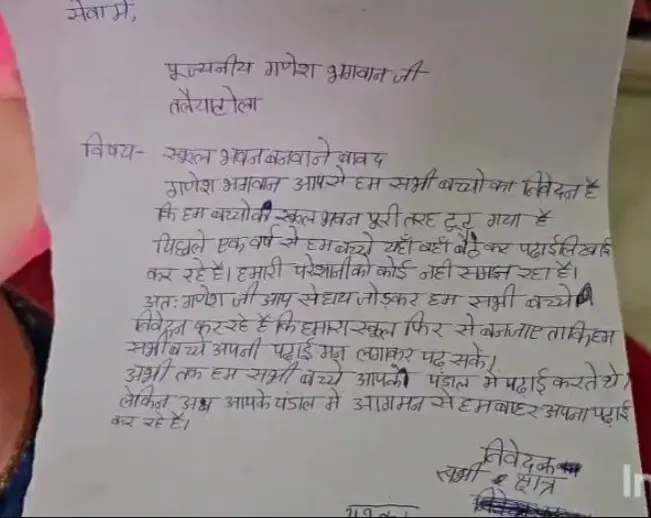 सेवा में,
पूज्यनीय गणेश भगवान जी
तलैयाटोला
विषय- स्कूल भवन बनवाने बावद
गणेश भगवान आपसे हम सभी बच्चो का निवेदन है
कि हम बच्चो की स्कूल भवन पूरी तरह टूट गया है
पिछले एक वर्ष से हम बच्चे यहाँ वहाँ बैठ कर पढाई लिखाई
कर रहे है। हमारी परेशानी को कोई नही समझ रहा है।
अतः गणेश जी आप से हाथ जोड़कर हम सभी बच्चे
निवेदन कर रहे है कि हमारा स्कूल फिर से बन जाए ताकि हम
सभी बच्चे अपनी पढाई मन लगाकर पढ़ सके।
अभी तक हम सभी बच्चे आपके पंडाल में पढाई करते थे।
लेकिन अब आपके पंडाल में आगमन से हम बाहर अपना पढाई
कर रहे है।
निवेदक
सभी छात्र
In